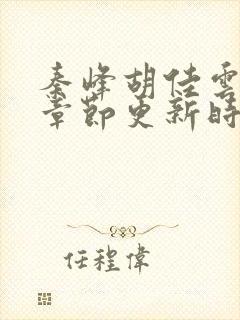 秦峰胡佳雲
章節更新時
任程偉